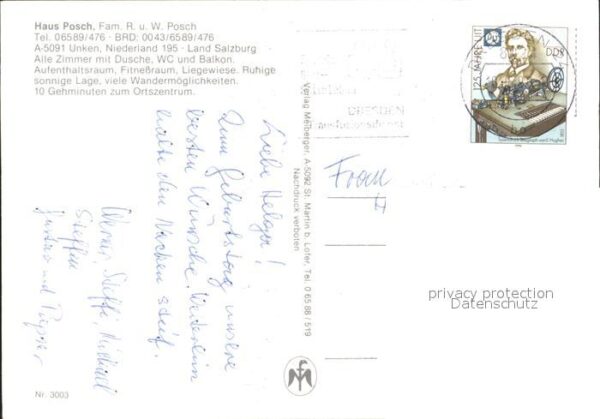 Haus Posch, Fam. R. u. W. Posch
Tel. 06589/476 · BRD: 0043/6589/476
A-5091 Unken, Niederland 195 · Land Salzburg
Alle Zimmer mit Dusche, WC und Balkon.
Aufenthaltsraum, Fitneßraum, Liegewiese. Ruhige
sonnige Lage, viele Wandermöglichkeiten.
10 Gehminuten zum Ortszentrum.
Liebe Helga!
Zum Geburtstag unsere
besten Wünsche. Weiterhin
halte den Nacken steif.
Werner, Steffi,
Steffen
und
Nr. 3003
Verlag Melberger, A-5092 St. Martin b. Lofer, Tel. 0 65 88 / 519
Nachdruck verboten
DRESDEN
Frau
125 JAHRE UIT
DDR
privacy protection
Datenschutz